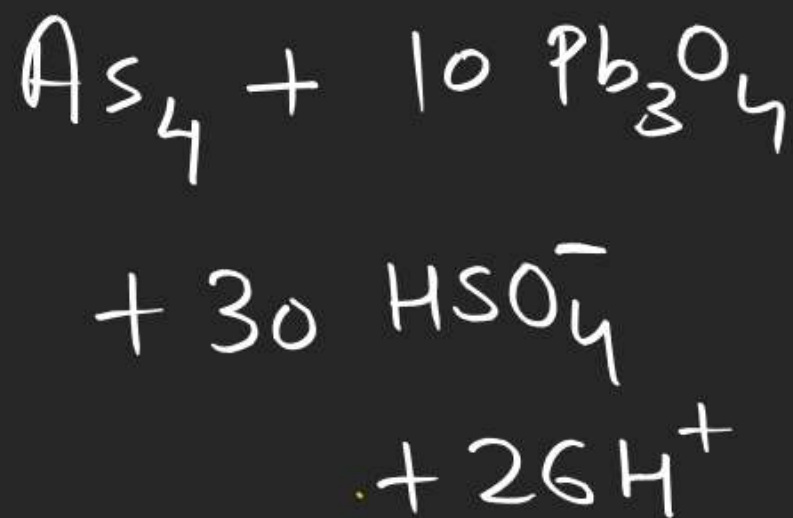 As₄ + 10 Pb₃O₄
+ 30 HSO₄⁻
+ 26 H⁺